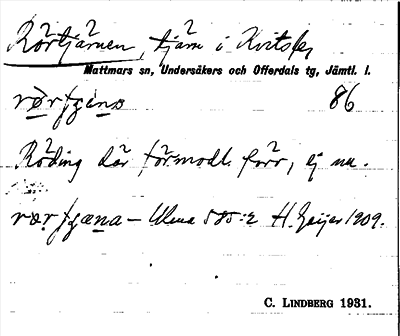 Rörtjärnen, tjärn i Kvitsle,
Mattmars sn, Undersåkers och Offerdals tg, Jämtl. l.
86
Röding där förmodl. förr, ej nu.
H. Geijer 1909.
C. LINDBERG 1931.